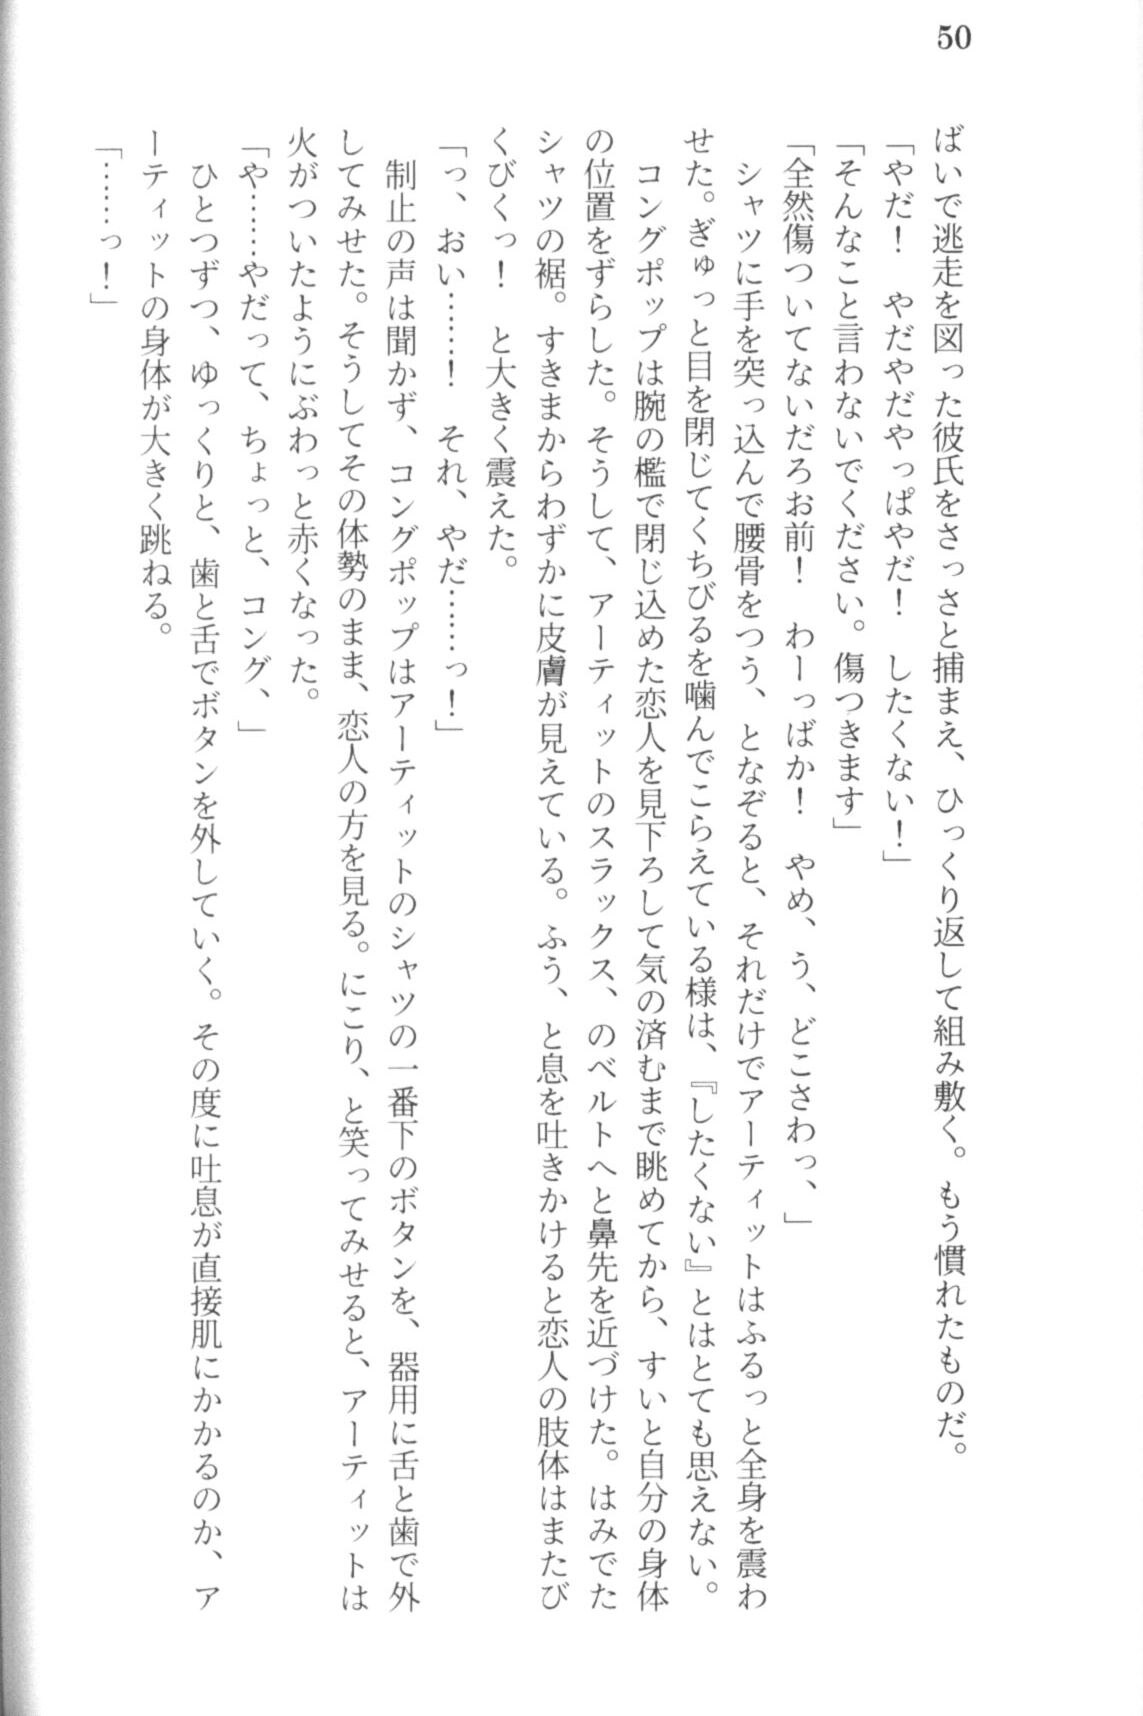 50
ばいで逃走を図った彼氏をさっさと捕まえ、ひっくり返して組み敷く。もう慣れたものだ。
「やだ！　やだやだやっぱやだ！　したくない！」
「そんなこと言わないでください。傷つきます」
「全然傷ついてないだろお前！　わーっばか！　やめ、う、どこさわっ、」
　シャツに手を突っ込んで腰骨をつう、となぞると、それだけでアーティットはふるっと全身を震わ
せた。ぎゅっと目を閉じてくちびるを噛んでこらえている様は、『したくない』とはとても思えない。
　コングポップは腕の檻で閉じ込めた恋人を見下ろして気の済むまで眺めてから、すいと自分の身体
の位置をずらした。そうして、アーティットのスラックス、のベルトへと鼻先を近づけた。はみでた
シャツの裾。すきまからわずかに皮膚が見えている。ふう、と息を吐きかけると恋人の肢体はまたび
くびくっ！　と大きく震えた。
「っ、おい……！　それ、やだ……っ！」
　制止の声は聞かず、コングポップはアーティットのシャツの一番下のボタンを、器用に舌と歯で外
してみせた。そうしてその体勢のまま、恋人の方を見る。にこり、と笑ってみせると、アーティットは
火がついたようにぶわっと赤くなった。
「や……やだって、ちょっと、コング、」
　ひとつずつ、ゆっくりと、歯と舌でボタンを外していく。その度に吐息が直接肌にかかるのか、ア
ーティットの身体が大きく跳ねる。
「……っ！」